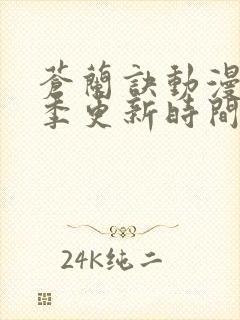 蒼蘭訣動漫
季更新時間
24K纯二